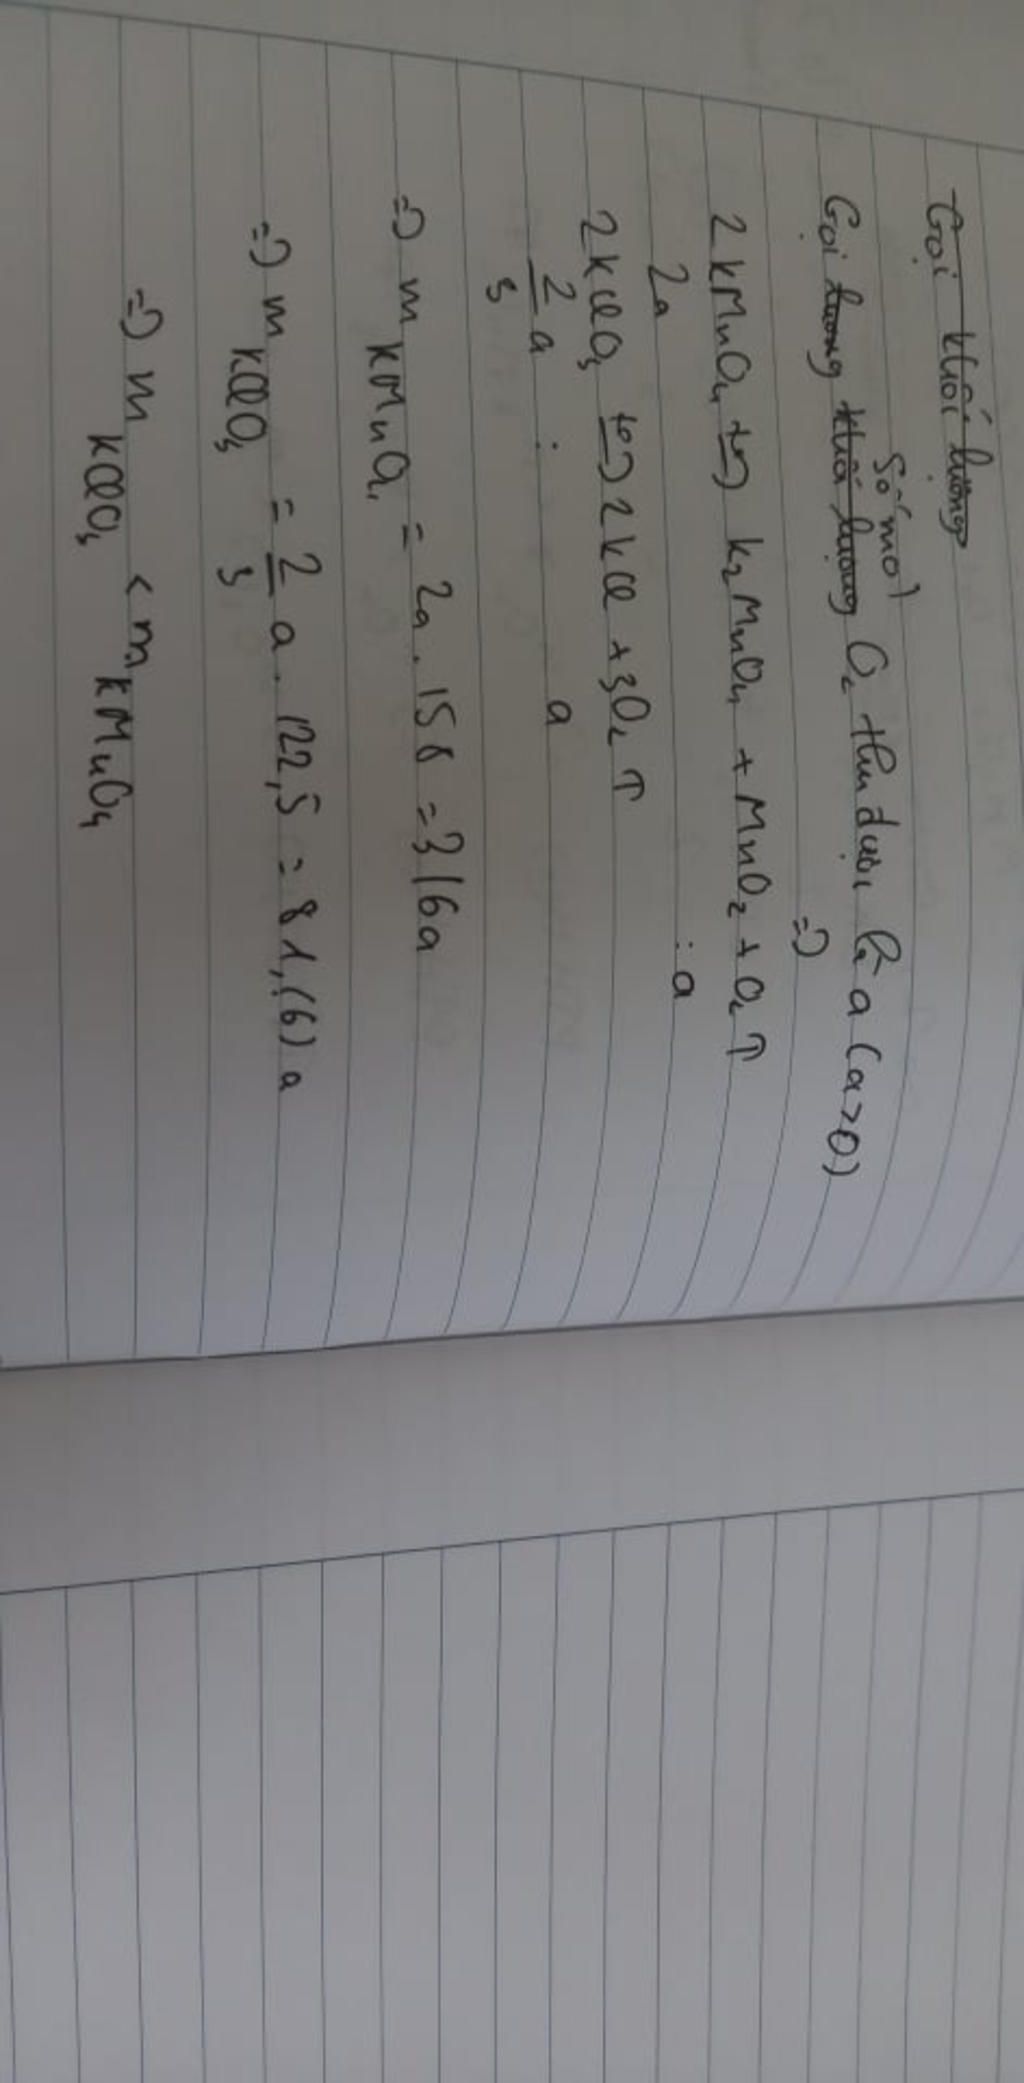 Gọi khối lượng
số mol
Gọi lượng khối lượng O₂ thu được là a (a>0)
=>
2KMnO₄ t° K₂MnO₄ + MnO₂ + O₂ ↑
2a : a
2KClO₃ t° 2KCl + 3O₂ ↑
2/3 a : a
=> m KMnO₄ = 2a . 158 = 316a
=> m KClO₃ = 2/3 a . 122,5 = 81,(6) a
=> m KClO₃ < m KMnO₄